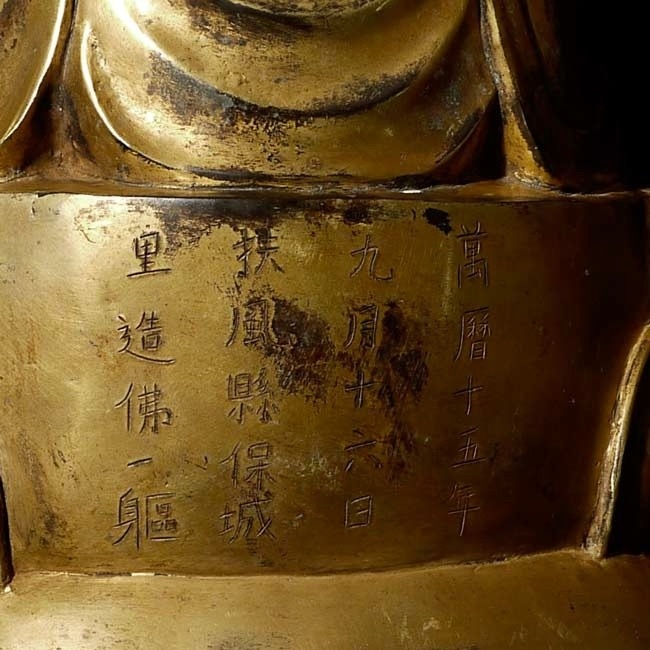 萬曆十五年
九月十六日
扶風縣保城
里造佛一軀